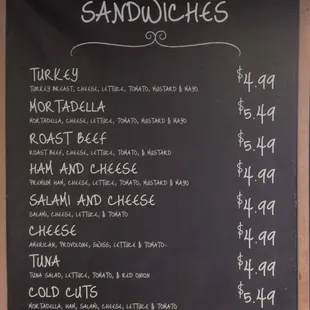 SANDWICHES
TURKEY $4.99
TURKEY BREAST, CHEESE, LETTUCE, TOMATO, MUSTARD & MAYO
MORTADELLA $5.49
MORTADELLA, CHEESE, LETTUCE, TOMATO, MUSTARD & MAYO
ROAST BEEF $5.49
ROAST BEEF, CHEESE, LETTUCE, TOMATO, & MUSTARD
HAM AND CHEESE $4.99
PREMIUM HAM, CHEESE, LETTUCE, TOMATO, MUSTARD & MAYO
SALAMI AND CHEESE $4.99
SALAMI, CHEESE, LETTUCE, & TOMATO
CHEESE $4.99
AMERICAN, PROVOLONE, SWISS, LETTUCE & TOMATO
TUNA $4.99
TUNA SALAD, LETTUCE, TOMATO, & RED ONION
COLD CUTS $5.49
MORTADELLA, HAM, SALAMI, CHEESE, LETTUCE & TOMATO